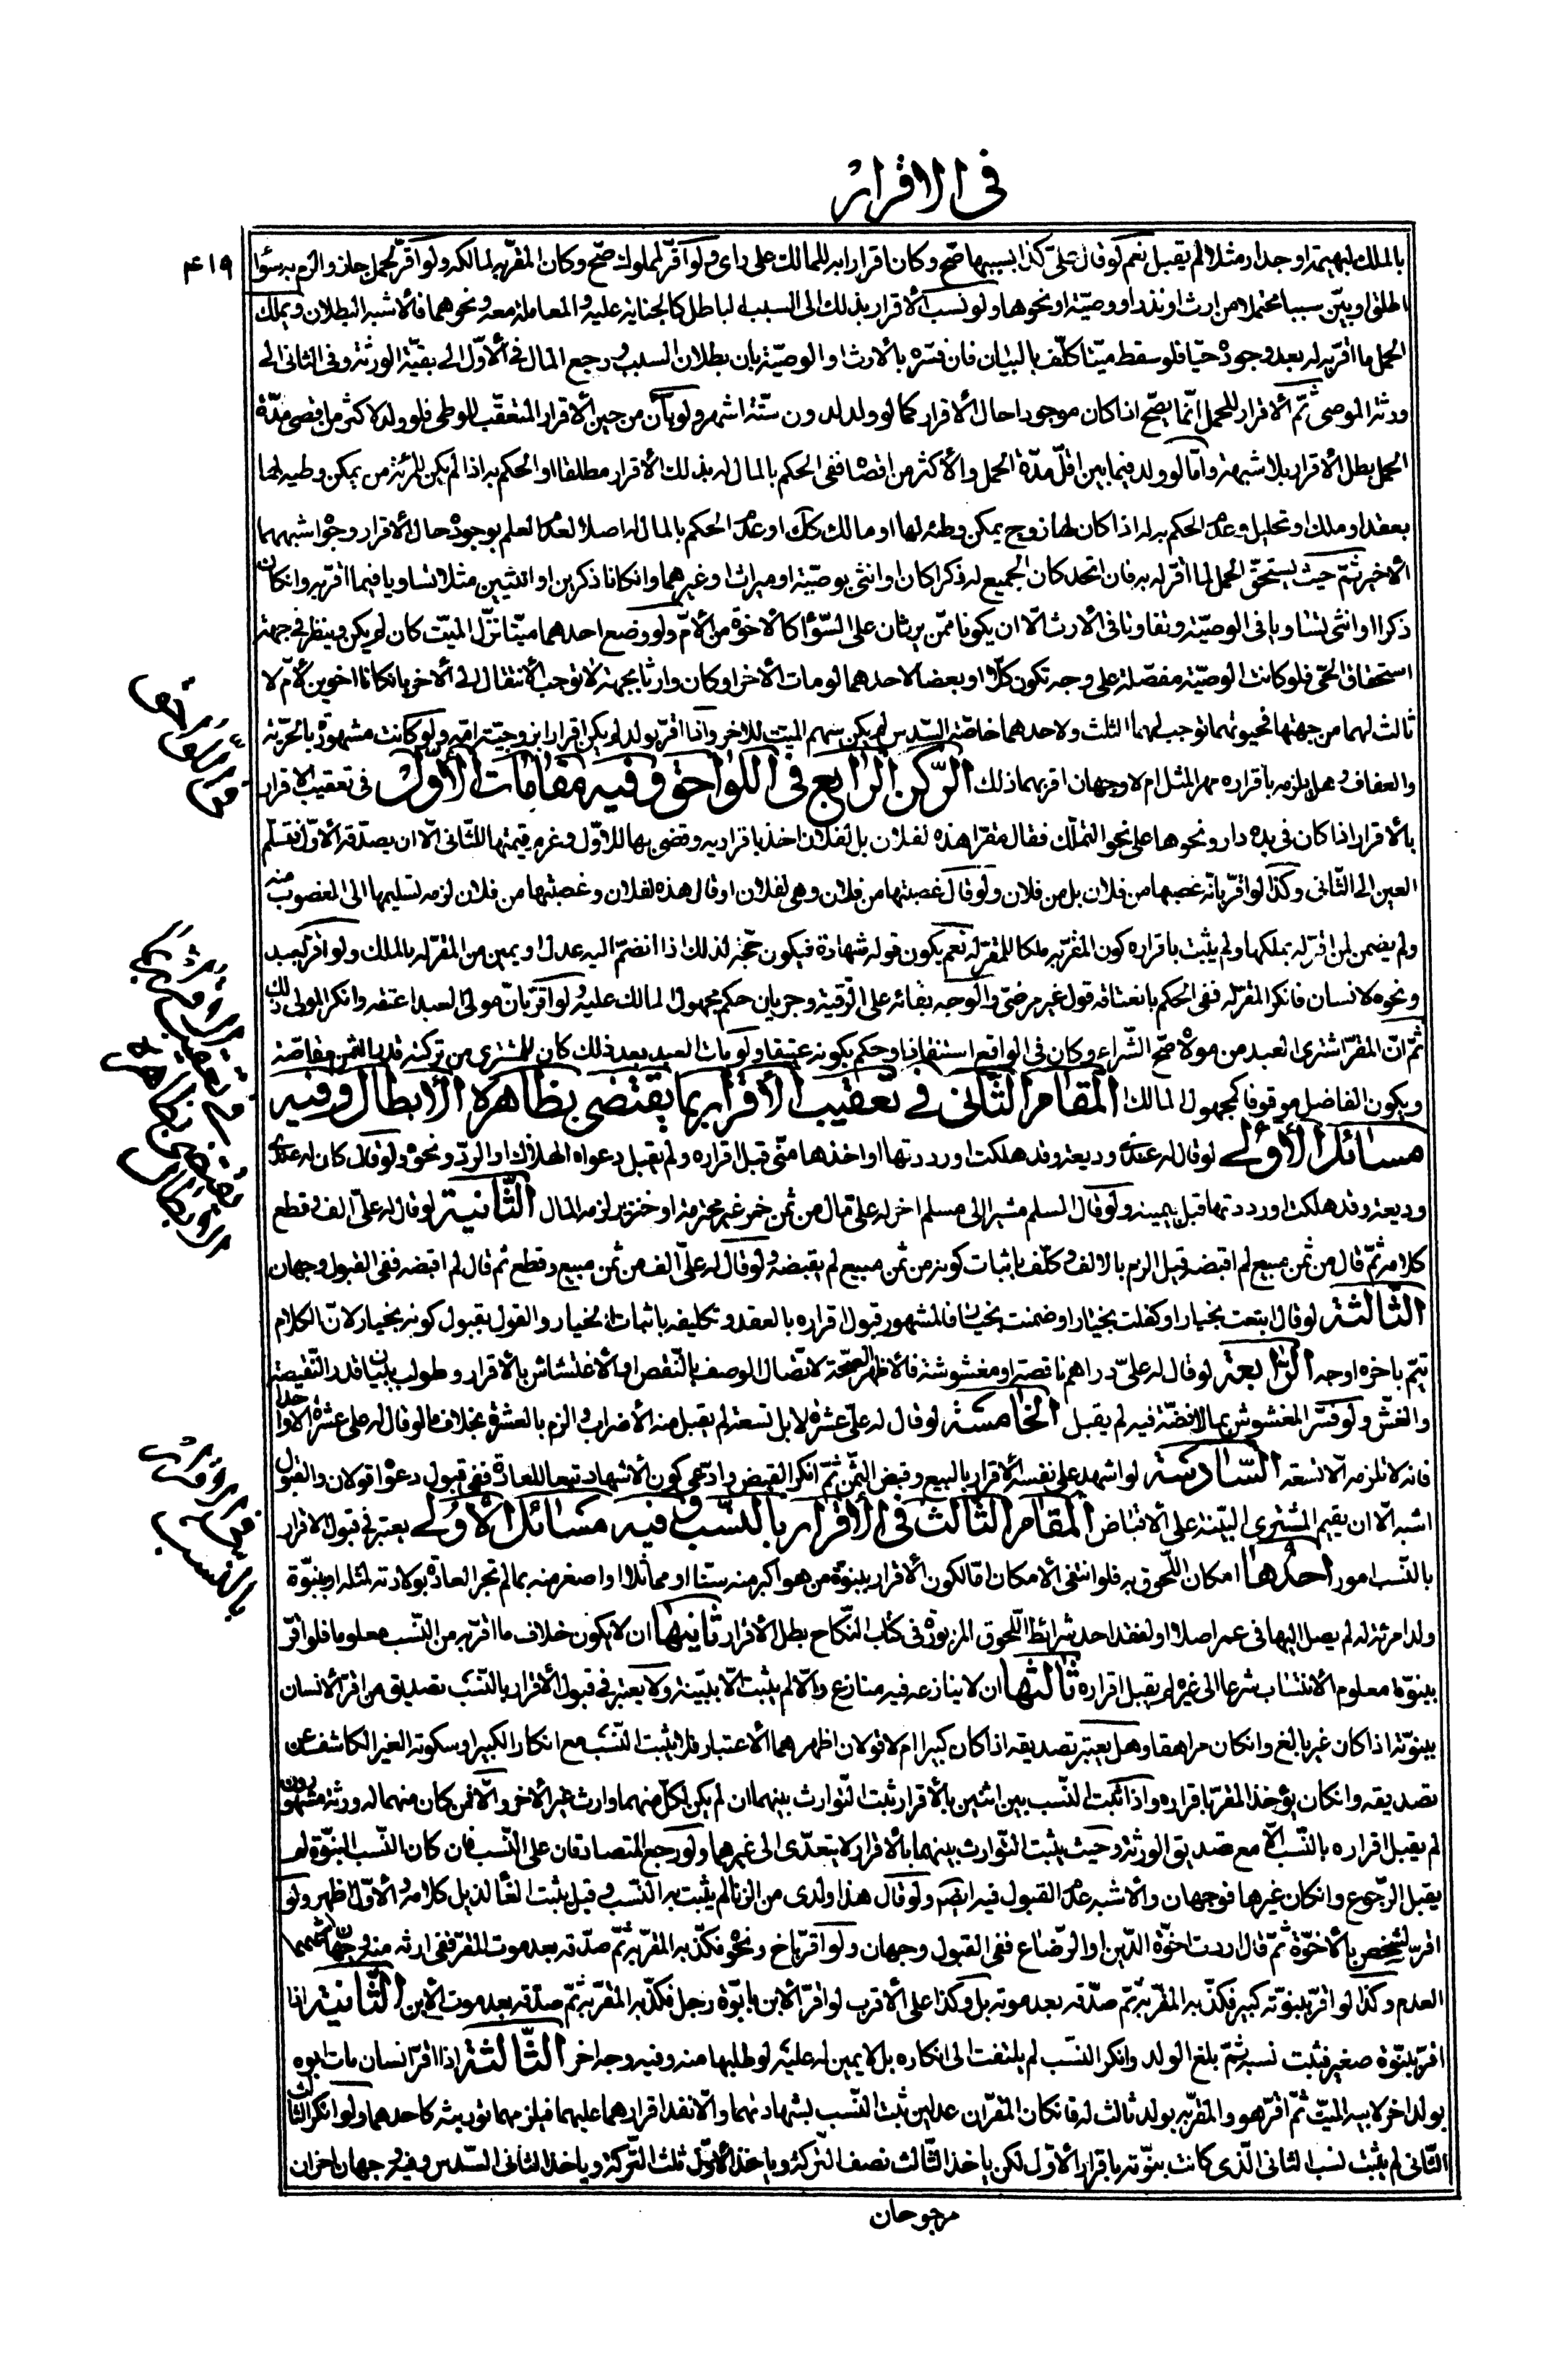 فى الاقرار
٤١٩
بالملك لبهيمة او جدار مثلا لم يقبل نعم لو قال علىّ كذا بسببها صحّ وكان اقرارا به للمالك على راى ولو اقرّ لمملوك صحّ وكان المقرّ به لمالكه ولو اقرّ لحمل جاز والزم به سواء
اطلق او بيّن سببا محتملا من ارث او نذر او وصيّة او نحوها ولو نسب الأقرار بذلك الى السبب الباطل كالجناية عليه والمعاملة معه ونحوهما فالأشبه البطلان ويملك
الحمل ما اقرّ به له بعد وجوده حيّا فلو سقط ميّتا كلّف بالبيان فان فسّره بالأرث او الوصيّة بان بطلان السبب ورجع المال فى الأوّل الى بقيّة الورثة وفى الثانى الى
ورثة الموصى ثمّ الأقرار للحمل انّما يصحّ اذا كان موجودا حال الأقرار كما لو ولد لدون ستّة اشهر ولو بآن من حين الأقرار المتعقّب للوطى فلو ولد لاكثر من اقصى مدّة
الحمل بطل الأقرار بلا شبهة وامّا لو ولد فيما بين اقلّ مدّة الحمل والأكثر من اقصاه ففى الحكم بالمال له بذلك الأقرار مطلقا او الحكم به اذا لم يكن للمرئة من يمكن وطيه لها
بعقد او ملك او تحليل وعدم الحكم به له اذا كان لها زوج يمكن وطئه لها او مالك كك او عدم الحكم بالمال له اصلا لعدم العلم بوجوده حال الأقرار وجوه اشبهها
الأخير ثمّ حيث يستحقّ الحمل لما اقرّ له به فان اتحد كان الجميع له ذكرا كان او انثى بوصيّة او ميراث او غيرهما وانكانا ذكرين او انثيين مثلا تساويا فيما اقرّ به وانكان
ذكرا او انثى تساويا فى الوصيّة وتفاوتا فى الأرث الّا ان يكونا ممّن يرثان على السّواء كالأخوة من الأمّ ولو وضع احدهما ميّتا نزّل الميّت كان لم يكن وينظر فى جهة
استحقاق الحىّ فلو كانت الوصيّة مفصّلة على وجه تكون كلّا او بعضا لاحدهما لو مات الأخر او كان وارثا بجهة لا توجب الأنتقال الى الأخر بانكانا اخوين لأمّ لا
ثالث لهما من جهتها فحيوتهما توجب لهما الثلث ولاحدهما خاصّة السّدس لم يكن سهم الميت للاخر واذا اقرّ بولد لم يكن اقرارا بزوجيّة امّه ولو كانت مشهورة بالحرّية
والعفاف وهل يلزمه باقراره مهر المثل ام لا وجهان اقربهما ذلك الرّكن الرّابع فى اللواحق وفيه مقامات الأوّل فى تعقيب الاقرار
بالأقرار اذا كان فى يده دار ونحوها على نحو التملّك فقال مقرّا هذه لفلان بل لفلان اخذ باقراريه وقضى بها للاوّل وغرم قيمتها للثّانى الّا ان يصدّقه الأوّل فتسلّم
العين الى الثّانى وكذا لو اقرّ بانّه غصبها من فلان بل من فلان ولو قال غصبتها من فلان وهى لفلان او قال هذه لفلان وغصبتها من فلان لزمه تسليمها الى المغصوب منه
ولم يضمن لمن اقرّ له بملكها ولم يثبت باقراره كون المقرّ به ملكا للمقرّ له نعم يكون قوله شهادة فيكون حجّة لذلك اذا انضمّ اليه عدل او يمين من المقرّ له بالملك ولو اقرّ بعبد
ونحوه لانسان فانكر المقرّ له ففى الحكم بانعتاقه قول غير مرضىّ والوجه بقائه على الرّقية وجريان حكم مجهول المالك عليه ولو اقرّ بانّ مولى العبد اعتقه وانكر المولى ذلك
ثمّ انّ المقرّ اشترى العبد من مولاه صحّ الشّراء وكان فى الواقع استنقاذا وحكم بكونه عتيقا ولو مات العبد بعد ذلك كان للمشترى من تركته قدر الثمن مقاصّة
ويكون الفاضل موقوفا كمجهول المالك المقام الثّانى فى تعقيب الأقرار بما يقتضى بظاهره الأبطال وفيه
مسائل الأولى لو قال له عندى وديعة وقد هلكت او رددتها او اخذها منّى قبل اقراره ولم يقبل دعواه الهلاك او الردّ ونحوه ولو قال كان له عندى
وديعة وقد هلكت او رددتها قبل بيمينه ولو قال المسلم مشيرا الى مسلم اخر له علىّ مال من ثمن خمر غير محترمة او خنزير لزمه المال الثّانية لو قال له علىّ الف وقطع
كلامه ثمّ قال من ثمن مبيع لم اقبضه قبل الزم بالالف وكلّف باثبات كونه من ثمن مبيع لم يقبضه ولو قال له علىّ الف من ثمن مبيع وقطع ثم قال لم اقبضه ففى القبول وجهان
الثّالثة لو قال ابتعت بخيار او كفلت بخيار او ضمنت بخيار فالمشهور قبول اقراره بالعقد وتكليفه باثبات الخيار والقول بقبول كونه بخيار لانّ الكلام
يتمّ باخره اوجه الرّابعة لو قال له علىّ دراهم ناقصة او مغشوشة فالأظهر الصحّة لاتّصال الوصف بالنّقص او الأغتشاش بالأقرار وطولب ببيان قدر النّقيصة
والغشّ ولو فسّر المغشوش بما لا فضّة فيه لم يقبل الخامسة لو قال له علىّ عشرة لا بل تسعة لم يقبل منه الأضراب والزم بالعشرة بخلاف ما لو قال له على عشرة الّا واحدا
فانه لا تلزمه الّا تسعة السّادسة لو اشهد على نفسه الأقرار بالبيع وقبض الثّمن ثمّ انكر القبض وادّعى كون الأشهاد تبعا للعادة ففى قبول دعواه قولان والقبول
اشبه الّا ان يقيم المشترى البيّنة على الأقباض المقام الثّالث فى الأقرار بالنّسب وفيه مسائل الأولى يعتبر فى قبول الاقرار
بالنّسب امور احدها امكان اللّحوق به فلو انتفى الأمكان امّا لكون الأقرار ببنوّة من هو اكبر منه سنّا او مماثلا او اصغر منه بما لم تجر العادة بولادته لمثله او ببنوّة
ولد امرئة له لم يصل اليها فى عمره اصلا او لفقد احد شرائط اللّحوق المزبورة فى كتاب النّكاح بطل الأقرار ثانيها ان لا يكون خلاف ما اقرّ به من النّسب معلوما فلو اقرّ
ببنوّة معلوم الأنتساب شرعا الى غيره لم يقبل اقراره ثالثها ان لا ينازعه فيه منازع والّا لم يثبت الّا ببيّنة ولا يعتبر فى قبول الأقرار بالنّسب تصديق من اقرّ الأنسان
ببنوّته اذا كان غير بالغ وانكان مراهقا وهل يعتبر تصديقه اذا كان كبيرا ام لا قولان اظهرهما الأعتبار فلا يثبت النّسب مع انكار الكبير او سكوته الغير الكاشف عن
تصديقه وانكان يؤخذ المقرّ باقراره واذا ثبت النّسب بين اثنين بالأقرار ثبت التّوارث بينهما ان لم يكن لكلّ منهما وارث غير الأخر والّا فمن كان منهما له ورثة مشهورون
لم يقبل اقراره بالنّسب الّا مع تصديق الورثة وحيث يثبت التّوارث بينهما بالأقرار لا يتعدّى الى غيرهما ولو رجع المتصادقان على النّسب فان كان النّسب البنوّة لم
يقبل الرّجوع وانكان غيرها فوجهان والأشبه عدم القبول فيه ايضم ولو قال هذا ولدى من الزنا لم يثبت به النّسب وقيل يثبت الغاء لذيل كلامه والأوّل اظهر ولو
اقرّ لشخص بالأخوّة ثمّ قال اردت اخوّة الدّين او الرضاع ففى القبول وجهان ولو اقرّ باخ ونحوه فكذّبه المقرّ به ثمّ صدّقه بعد موت المقرّ ففى ارثه منه وجهان اشبههما
العدم وكذا لو اقرّ ببنوّة كبير فكذّبه المقرّ به ثمّ صدّقه بعد موته بل وكذا على الأقرب لو اقرّ الأبن بابوّة رجل فكذّبه المقرّ به ثمّ صدّقه بعد موت الأبن الثّانية اذا
اقرّ ببنوّة صغير فثبت نسبه ثمّ بلغ الولد وانكر النسب لم يلتفت الى انكاره بل لا يمين له عليه لو طلبها منه وفيه وجه اخر الثّالثة اذا اقرّ انسان مات ابوه
بولد اخر لابيه الميّت ثمّ اقرّ هو والمقرّ به بولد ثالث له فانكان المقرّان عدلين ثبت النّسب بشهادتهما والّا نفذ اقرارهما عليهما فيلزمهما توريثه كاحدهما ولو انكر الثالث
الثّانى لم يثبت نسب الثانى الّذى كانت بنوّته باقرار الأوّل لكن ياخذ الثّالث نصف التركة وياخذ الأوّل ثلث التّركة وياخذ الثانى السّدس وفيه وجهان اخران
مرجوحان